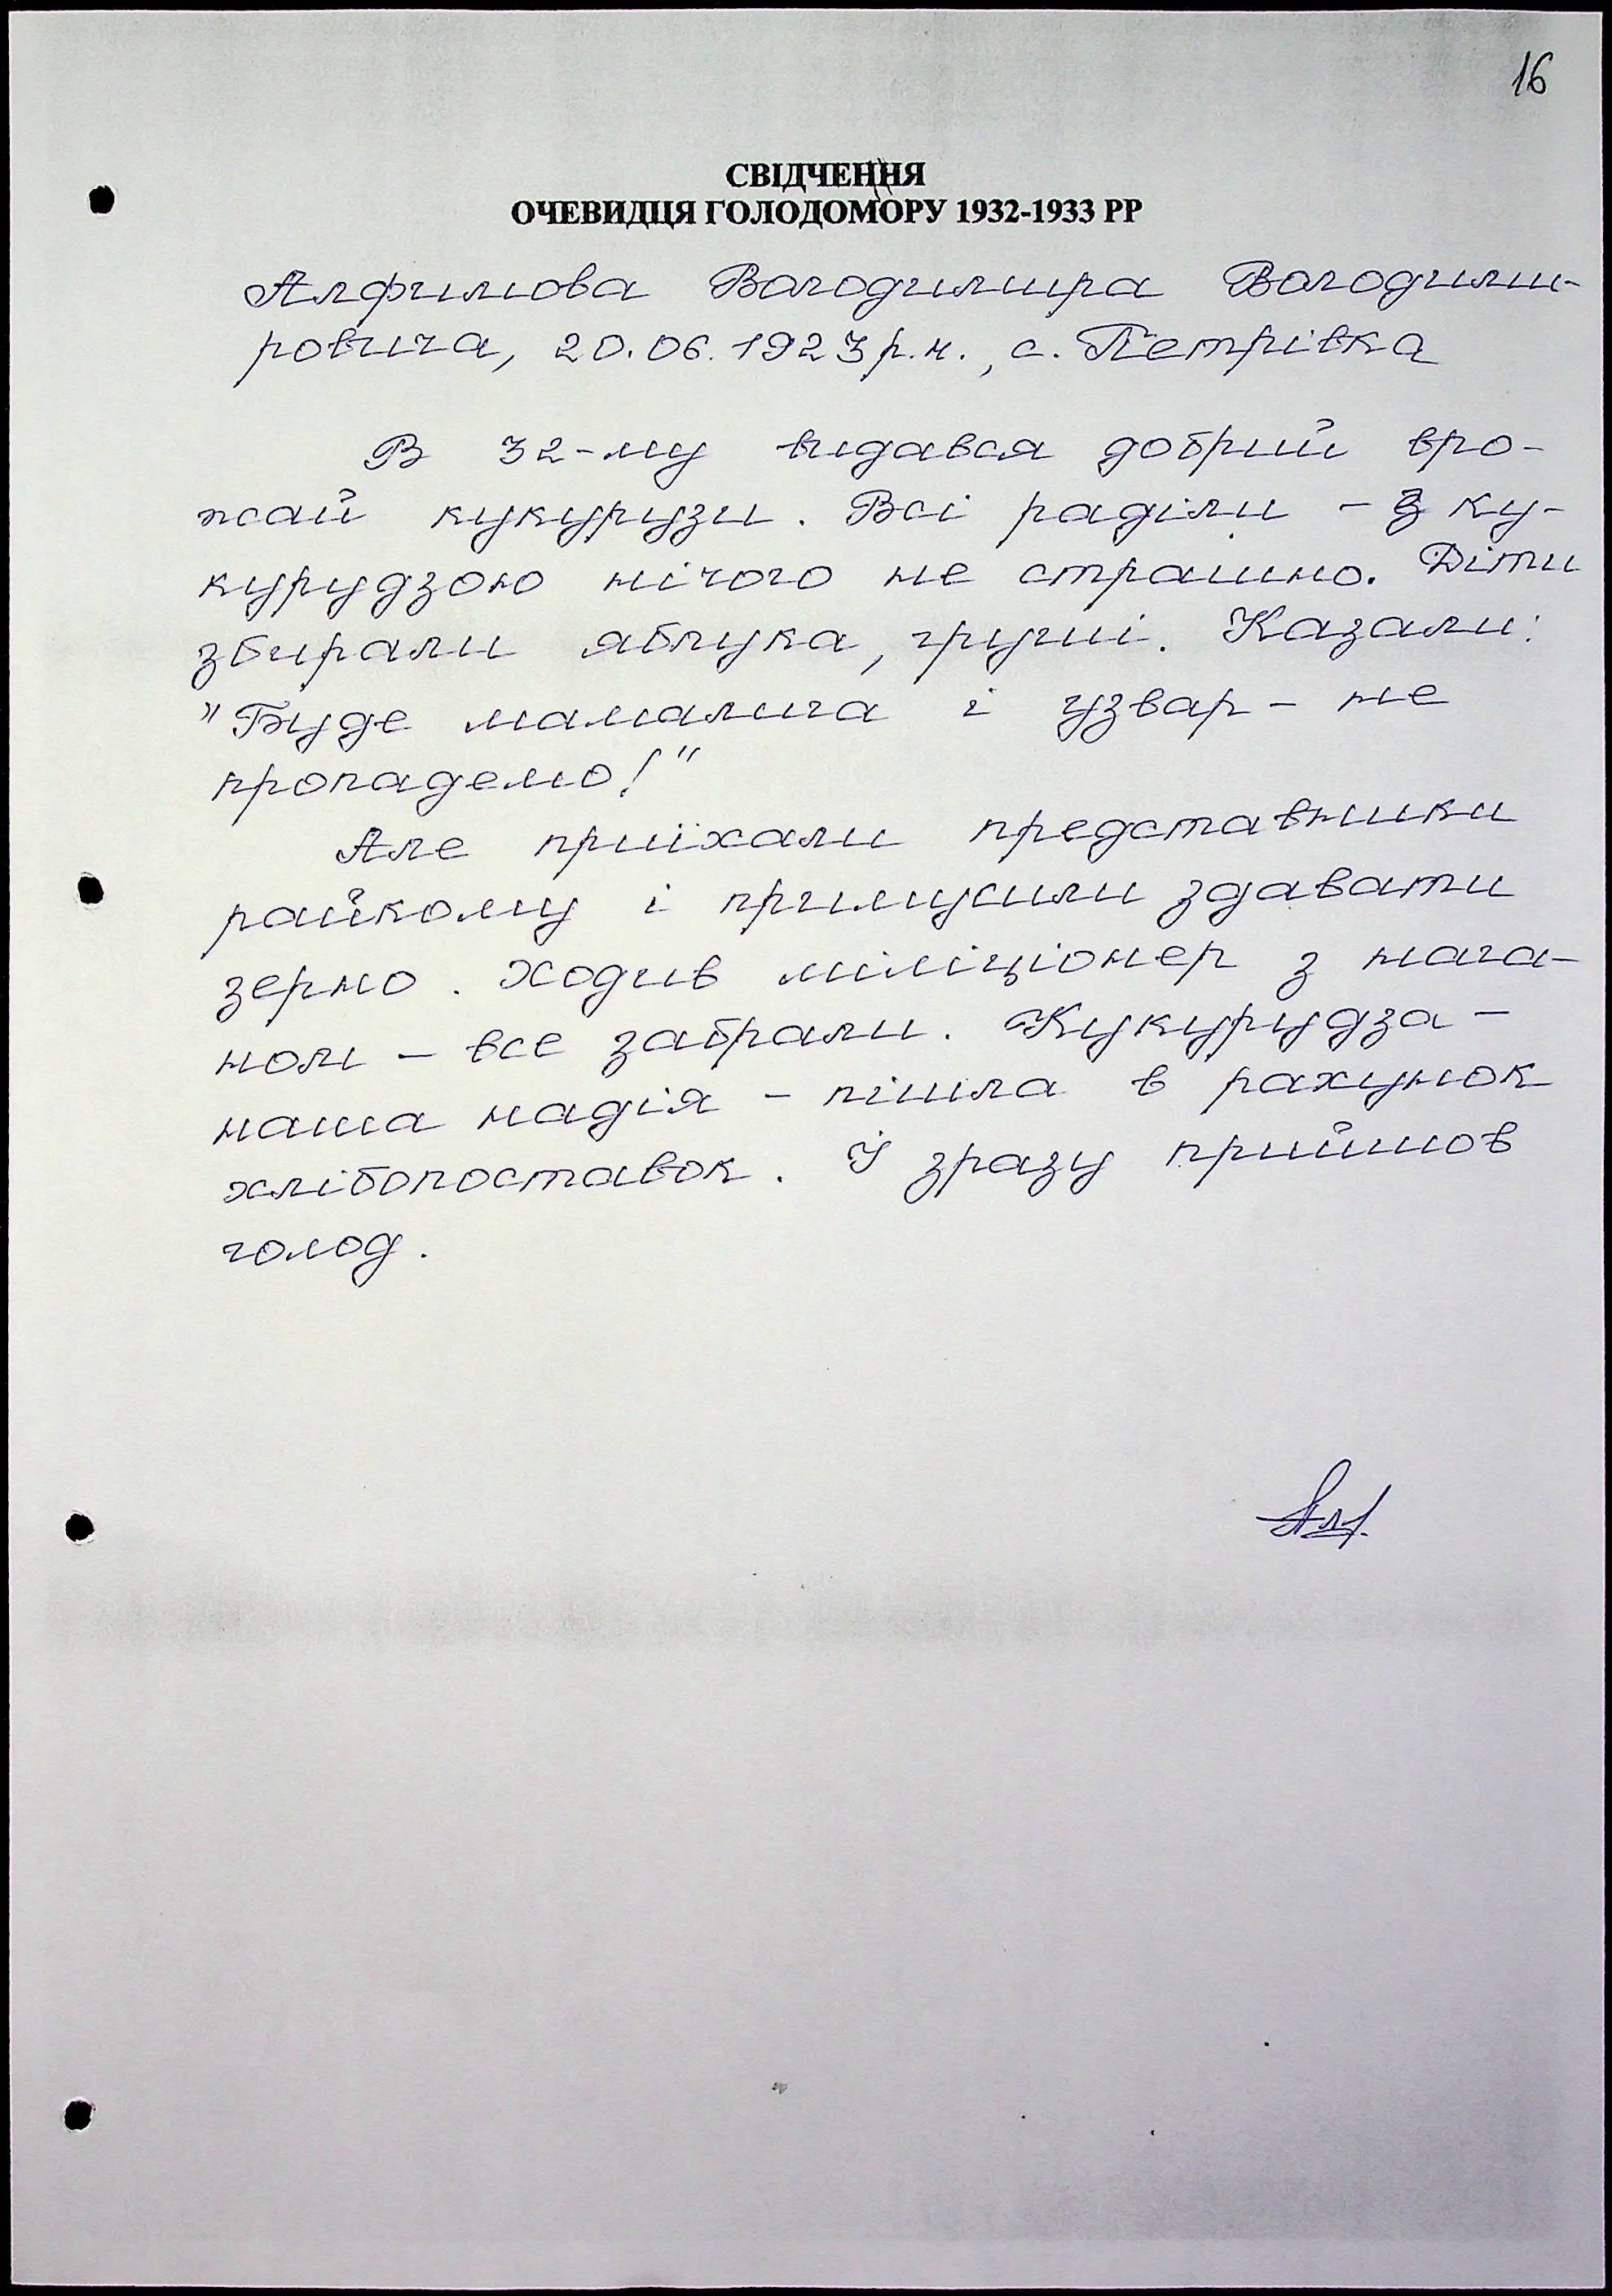 16
СВІДЧЕННЯ
ОЧЕВИДЦЯ ГОЛОДОМОРУ 1932-1933 РР
Алфимова Володимира Володими-
ровича, 20.06.1923р.н., с. Петрівка
В 32-му видався добрий вро-
жай кукурузи. Всі раділи - з ку-
курудзою нічого не страшно. Діти
збирали яблука, груші. Казали:
"Буде мамалига і узвар - не
пропадемо!"
Але приїхали представники
райкому і примусили здавати
зерно. Ходив міліціонер з нага-
ном - все забрали. Кукурудза -
наша надія - пішла в рахунок
хлібопоставок. І зразу прийшов
голод.